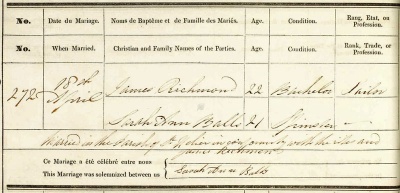 No. Date du Mariage. Noms de Baptême et de Famille des Mariés. Age. Condition. Rang, Etat, ou Profession.
No. When Married. Christian and Family Names of the Parties. Age. Condition. Rank, Trade, or Profession.
272 18th April James Richmond 22 Bachelor Sailor
Sarah Ann Balls 21 Spinster —
Married in the Parish of St Helier in conformity with the and
Ce Mariage a été célébré entre nous James Richmond
This Marriage was solemnized between us Sarah Ann Balls